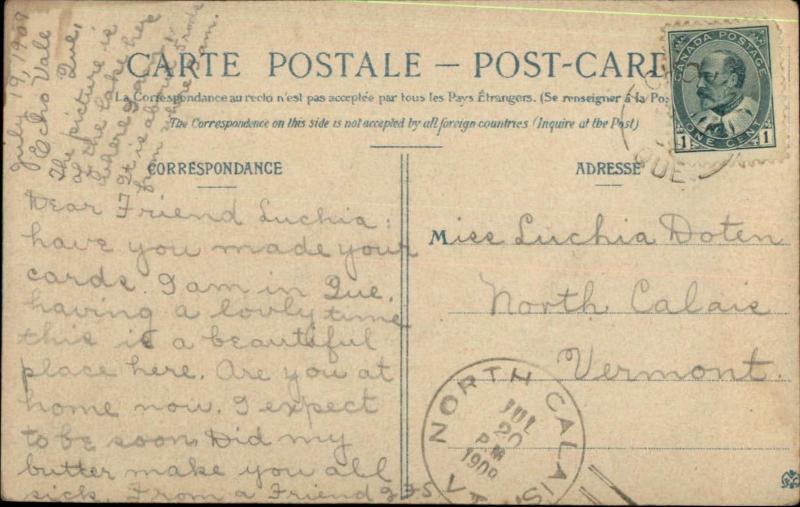 July 19, 1909
Echo Vale
Que,
The picture is
of the Lake here
where I am.
It is about 4 rods
from where I am.
CARTE POSTALE — POST-CAR
La Correspondance au recto n'est pas acceptée par tous les Pays Étrangers. (Se renseigner à la Po
The Correspondence on this side is not accepted by all foreign countries (Inquire at the Post)
CORRESPONDANCE
Dear Friend Luchia:
have you made your
cards. I am in Que.
having a lovly time
this is a beautiful
place here. Are you at
home now. I expect
to be soon. Did my
butter make you all
sick. From a Friend
ADRESSE
Miss Luchia Doten
North Calais
Vermont.
CANADA POSTAGE
1 ONE CENT 1
QUE
NORTH CALAIS
JUL
20
P.M
1909
VT